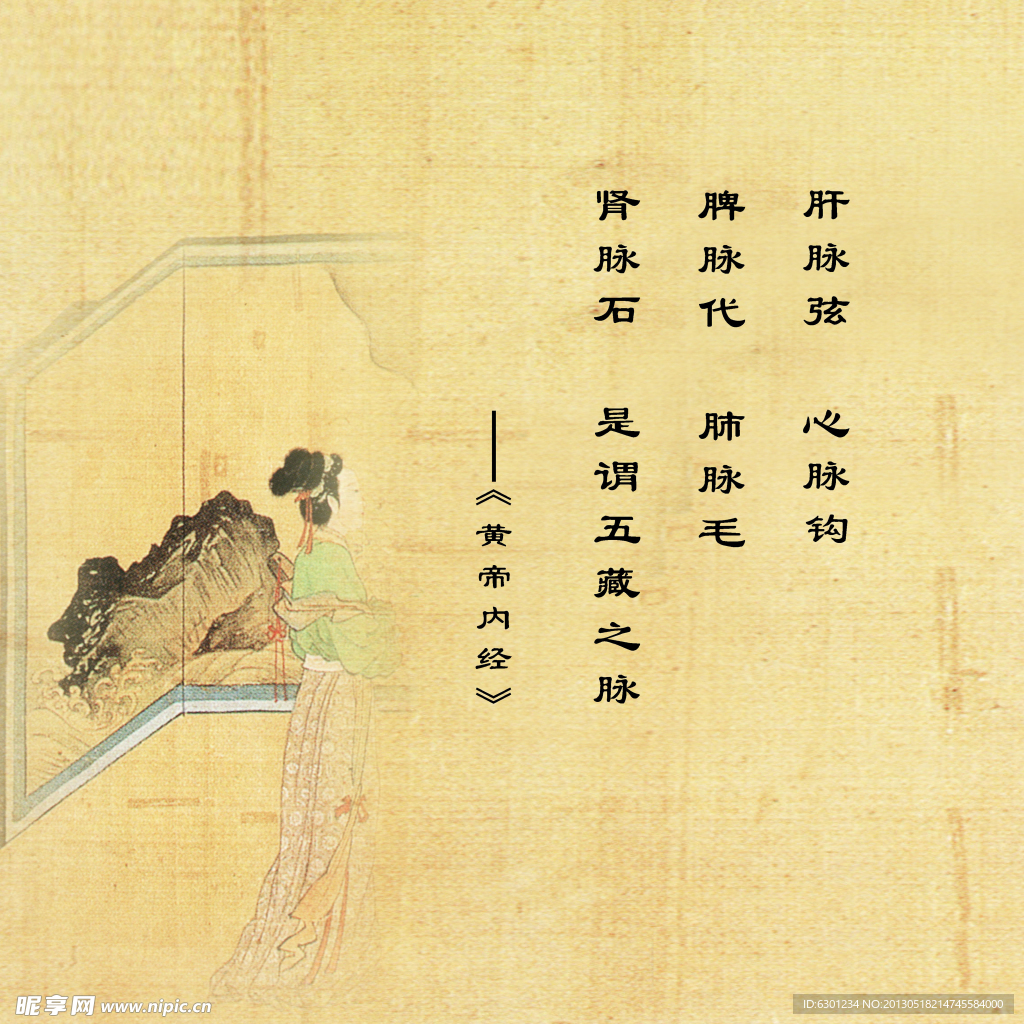 肝脉弦 心脉钩
脾脉代 肺脉毛
肾脉石 是谓五藏之脉
——《黄帝内经》
昵享网 www.nipic.cn
ID:6301234 NO:20130518214745584000